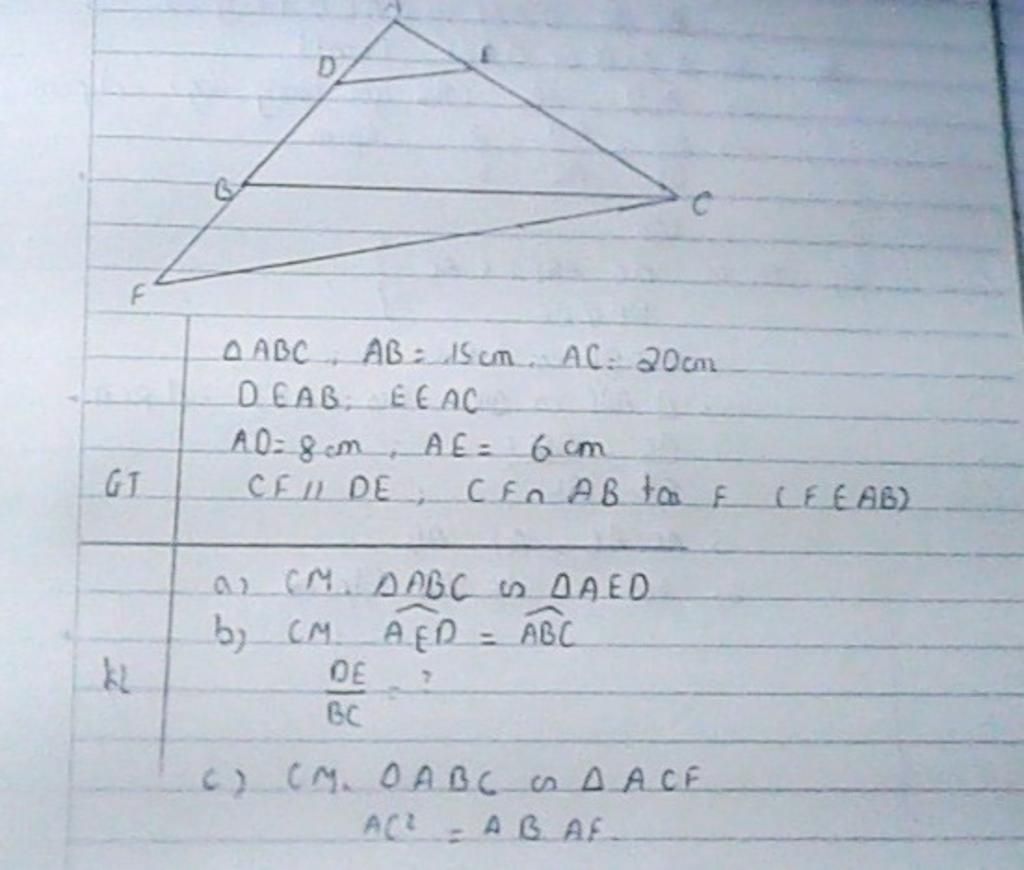 A
D E
B C
F
Δ ABC, AB = 15cm, AC = 20cm
D ∈ AB; E ∈ AC
AD = 8 cm, AE = 6 cm
GT CF // DE; CF ∩ AB tại F (F ∈ AB)
a) CM. ΔABC ∽ ΔAED
b) CM. \widehat{AED} = \widehat{ABC}
KL DE = ?
BC
c) CM. ΔABC ∽ Δ ACF
AC² = AB AF.